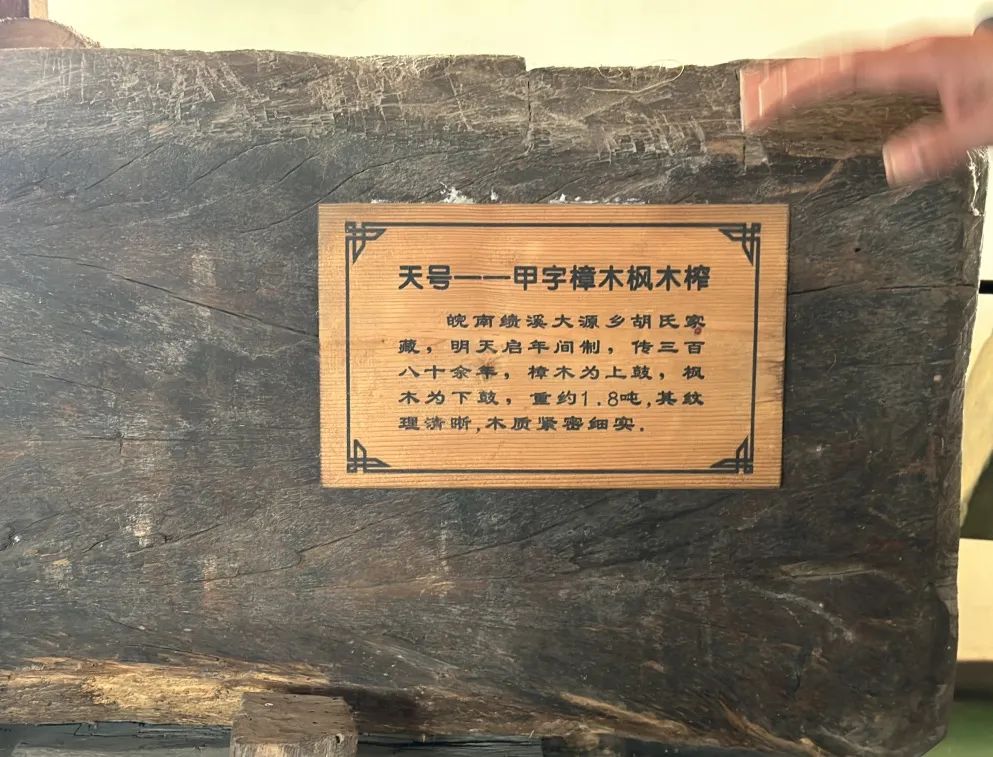 天号——甲字樟木枫木榨
皖南绩溪大源乡胡氏家
藏，明天启年间制，传三百
八十余年，樟木为上鼓，枫
木为下鼓，重约1.8吨,其纹
理清晰,木质紧密细实.